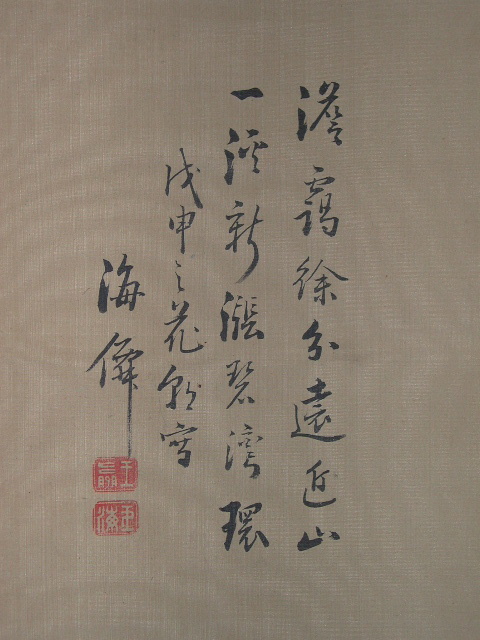 澹靄徐分遠近山
一溪新漲碧灣環
戊申之花朝寫
海僊